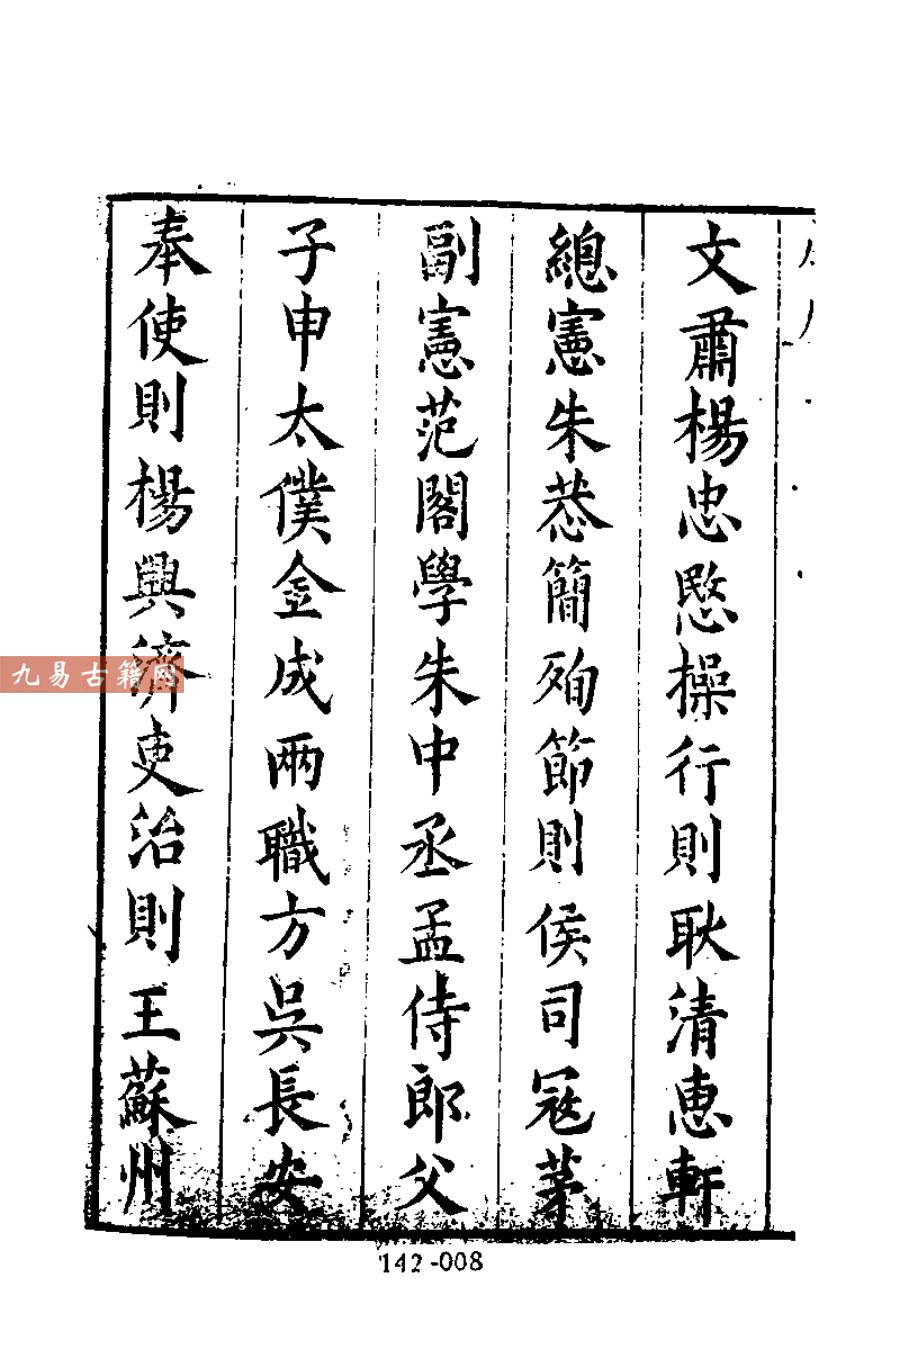 文肅楊忠愍操行則耿清惠軒
總憲朱恭簡殉節則侯司冦茅
副憲范閣學朱中丞孟侍郎父
子申太僕金成兩職方吳長安
奉使則楊興濟吏治則王蘇州
九易古籍网
142-008